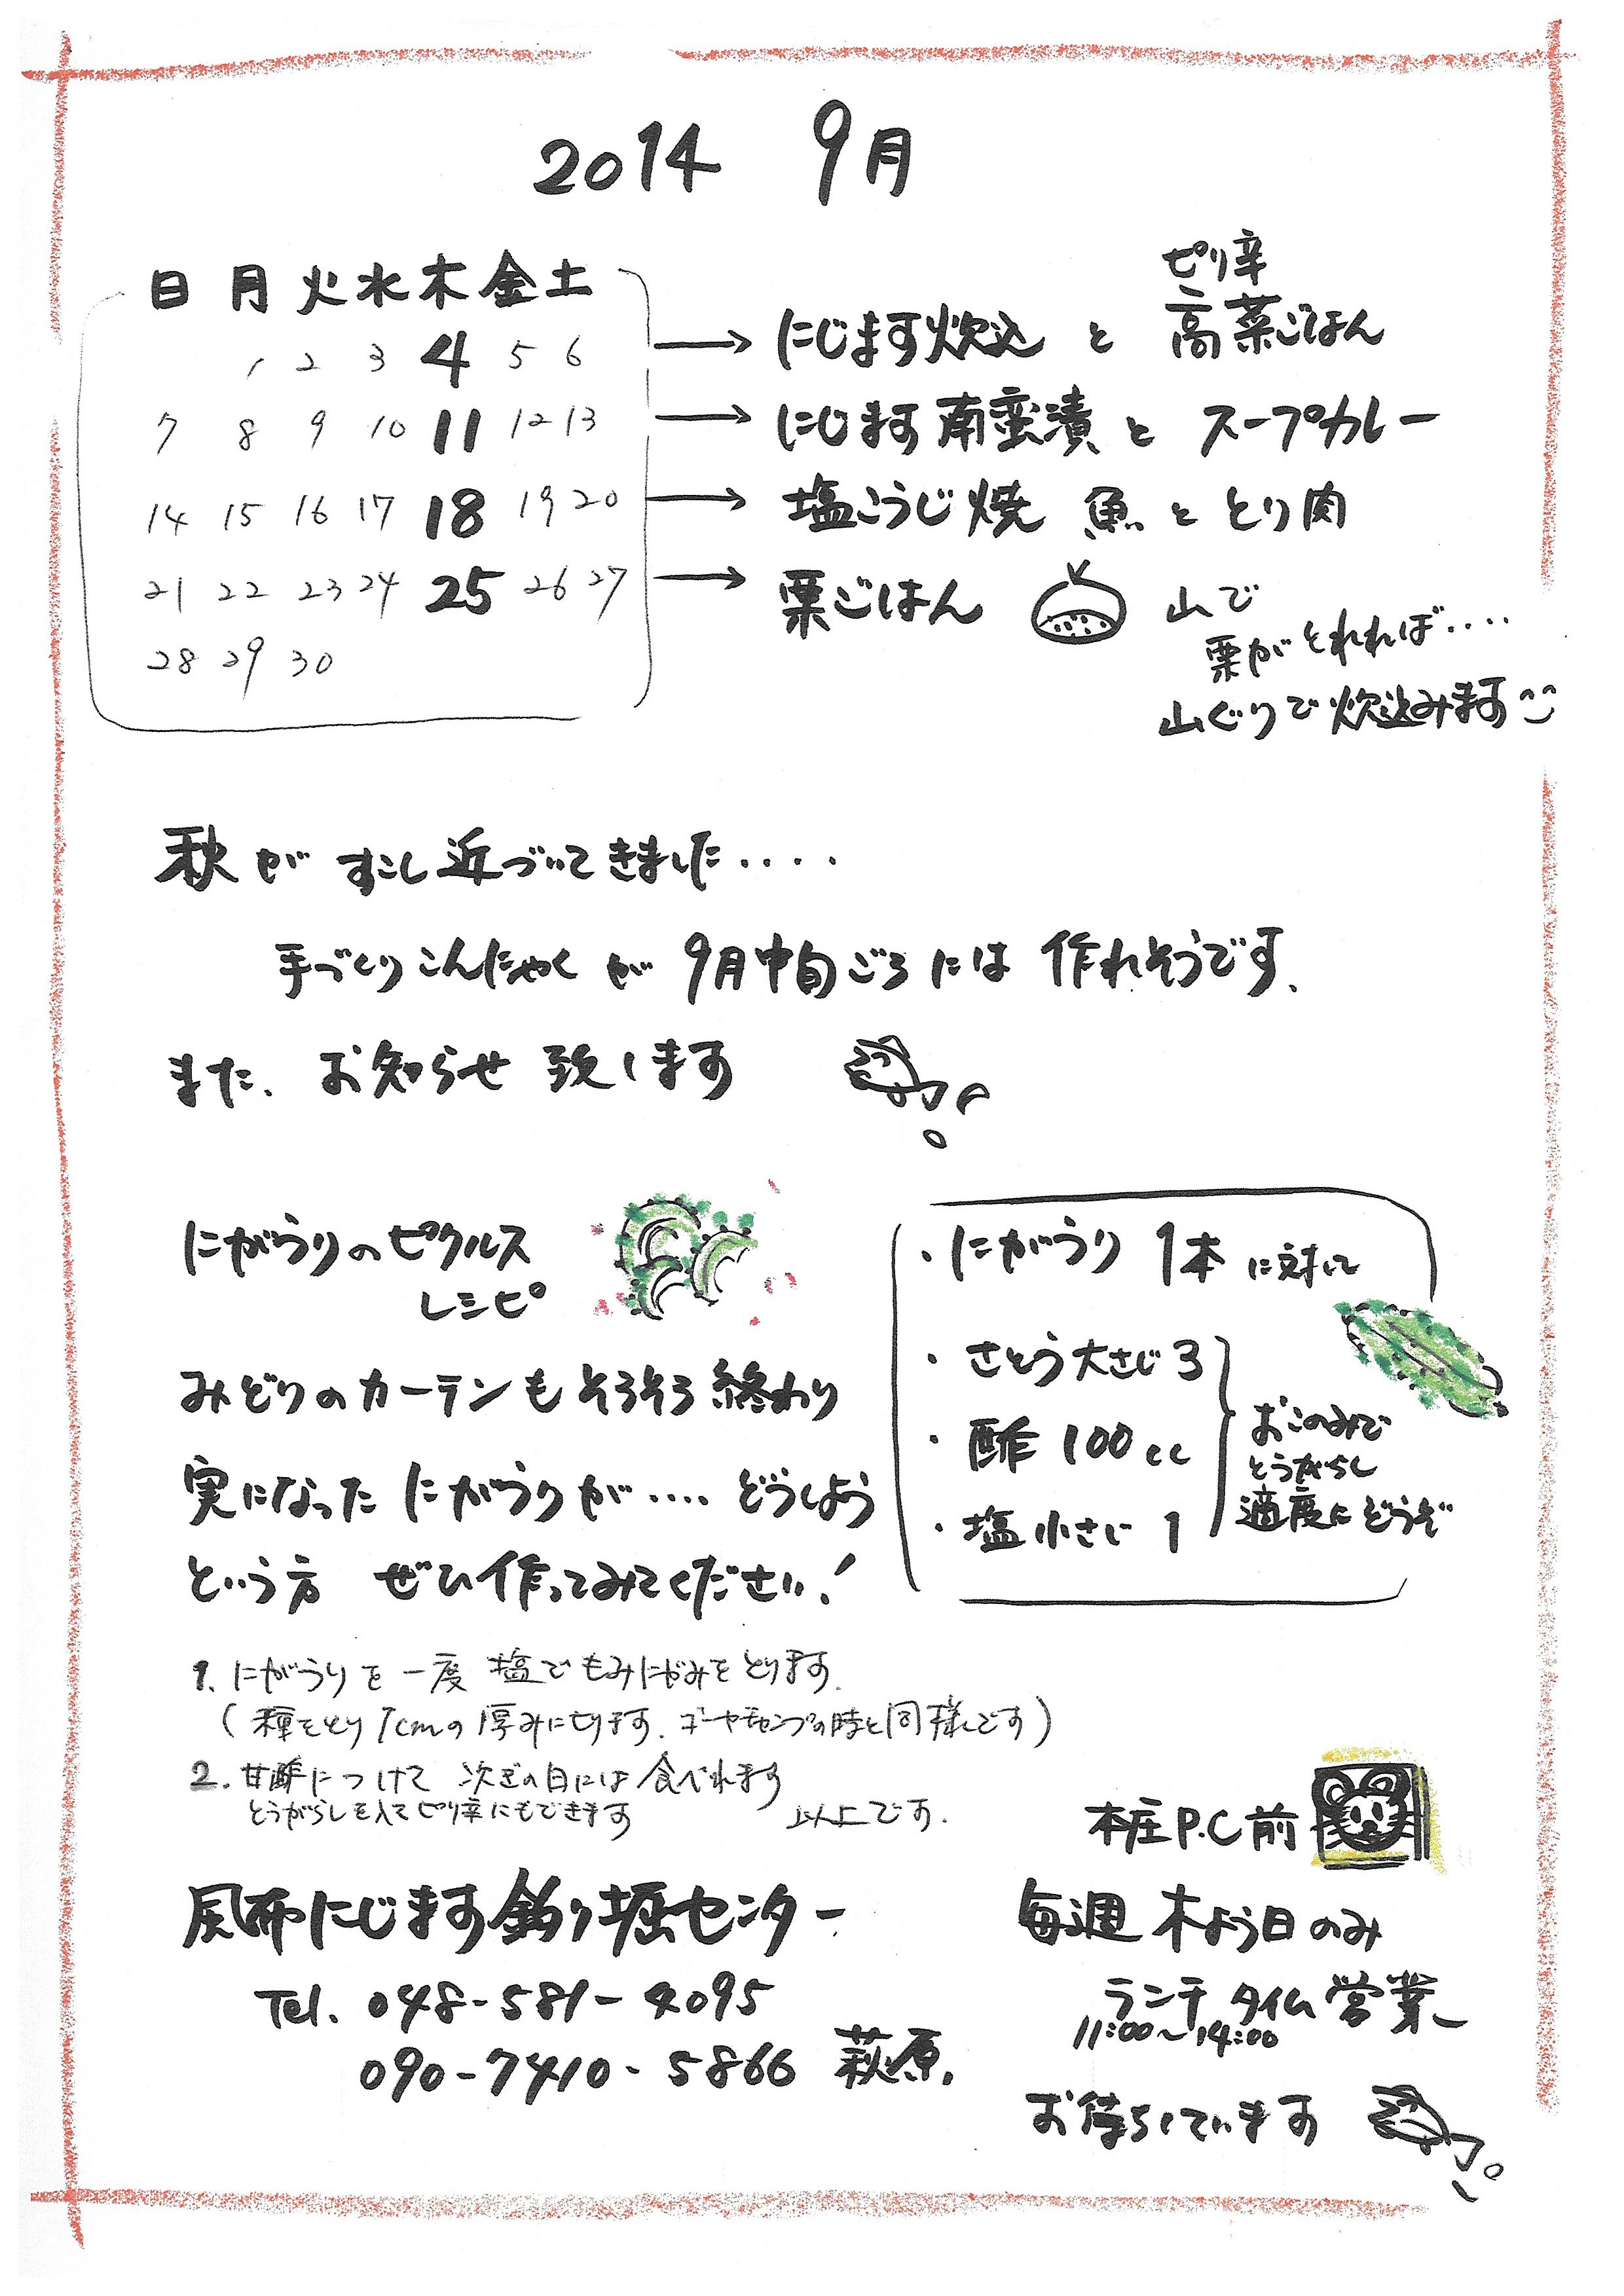 2014 9月
日 月 火 水 木 金 土
1 2 3 4 5 6
7 8 9 10 11 12 13
14 15 16 17 18 19 20
21 22 23 24 25 26 27
28 29 30
ピリ辛
→ にじます炊込 と 高菜ごはん
→ にじます南蛮漬 と スープカレー
→ 塩こうじ焼 魚 と とり肉
→ 栗ごはん
山で
栗がとれれば‥‥
山ぐりで炊込みます
秋が すこし近づいてきました‥‥
手づくりこんにゃく が 9月中旬ごろには 作れそうです、
また、お知らせ 致します
にがうりのピクルス
レシピ
みどりのカーテンもそろそろ終わり
実になった にがうりが‥‥どうしよう
という方 ぜひ作ってみてください!
・にがうり 1本 に対して
・さとう大さじ3
・酢 100cc
・塩 小さじ 1
おこのみで
とうがらし
適度にどうぞ
1. にがうりを 一度 塩でもみにがみをとります.
(種をとり1cmの厚みに切ります. ゴーヤチャンプの時と同様です)
2. 甘酢につけて 次ぎの日には 食べれます
とうがらしを入てピリ辛にもできます 以上です.
風布にじます釣り堀センター
Tel. 048-581-4095
090-7410-5866 萩原,
本庄P.C前
毎週 木よう日のみ
ランチタイム営業
11:00~14:00
お待ちしています